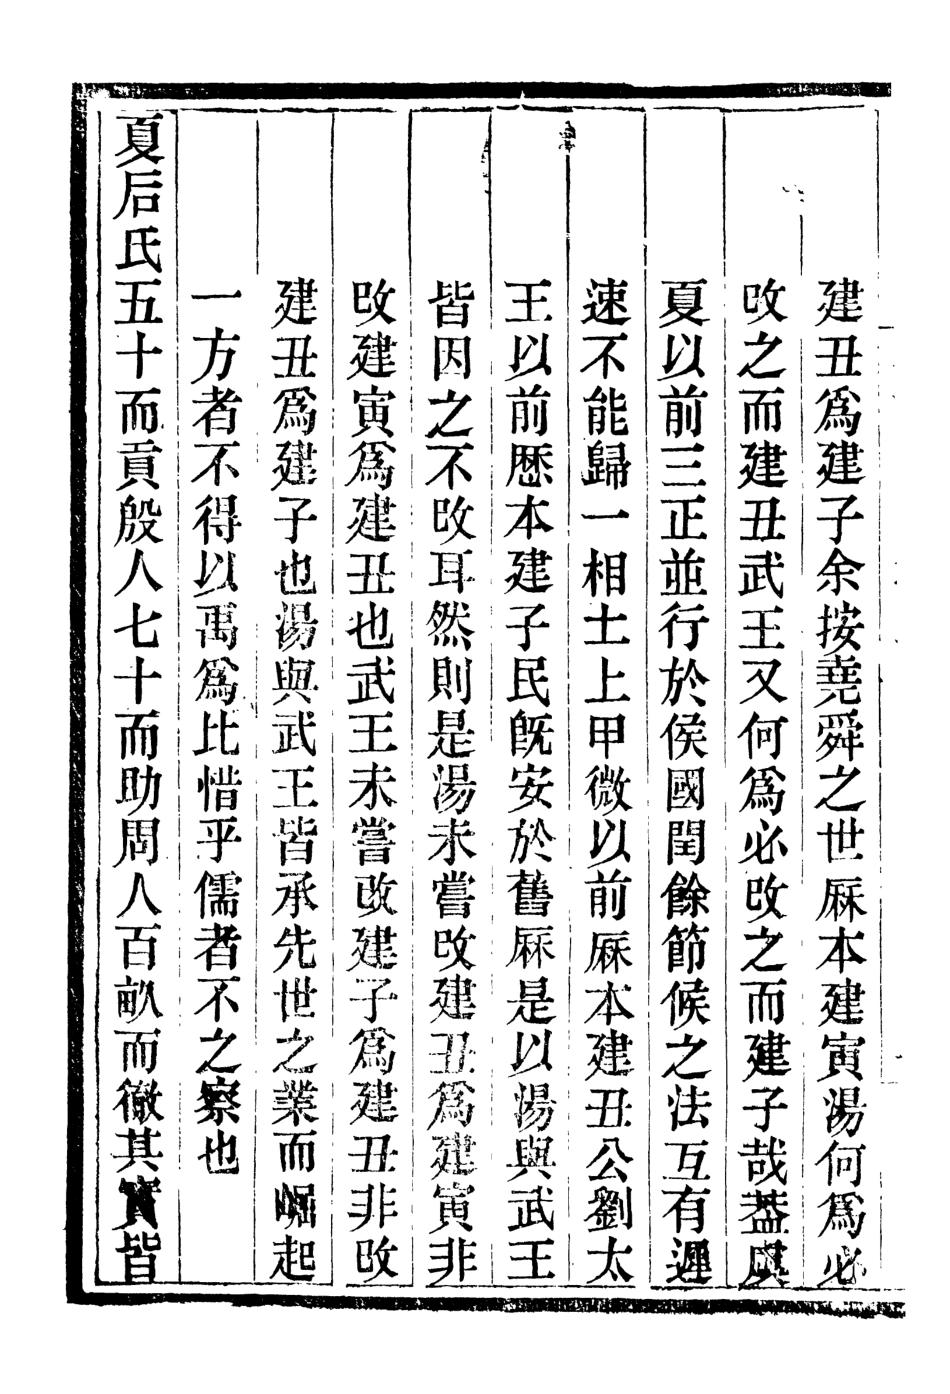 建丑爲建子余按堯舜之世厤本建寅湯何爲必
改之而建丑武王又何爲必改之而建子哉蓋虞
夏以前三正並行於侯國閏餘節候之法互有遲
速不能歸一相土上甲微以前厤本建丑公劉太
王以前厯本建子民旣安於舊厤是以湯與武王
皆因之不改耳然則是湯未嘗改建丑爲建寅非
改建寅爲建丑也武王未嘗改建子爲建丑非改
建丑爲建子也湯與武王皆承先世之業而崛起
一方者不得以禹爲比惜乎儒者不之察也
夏后氏五十而貢殷人七十而助周人百畝而徹其實皆